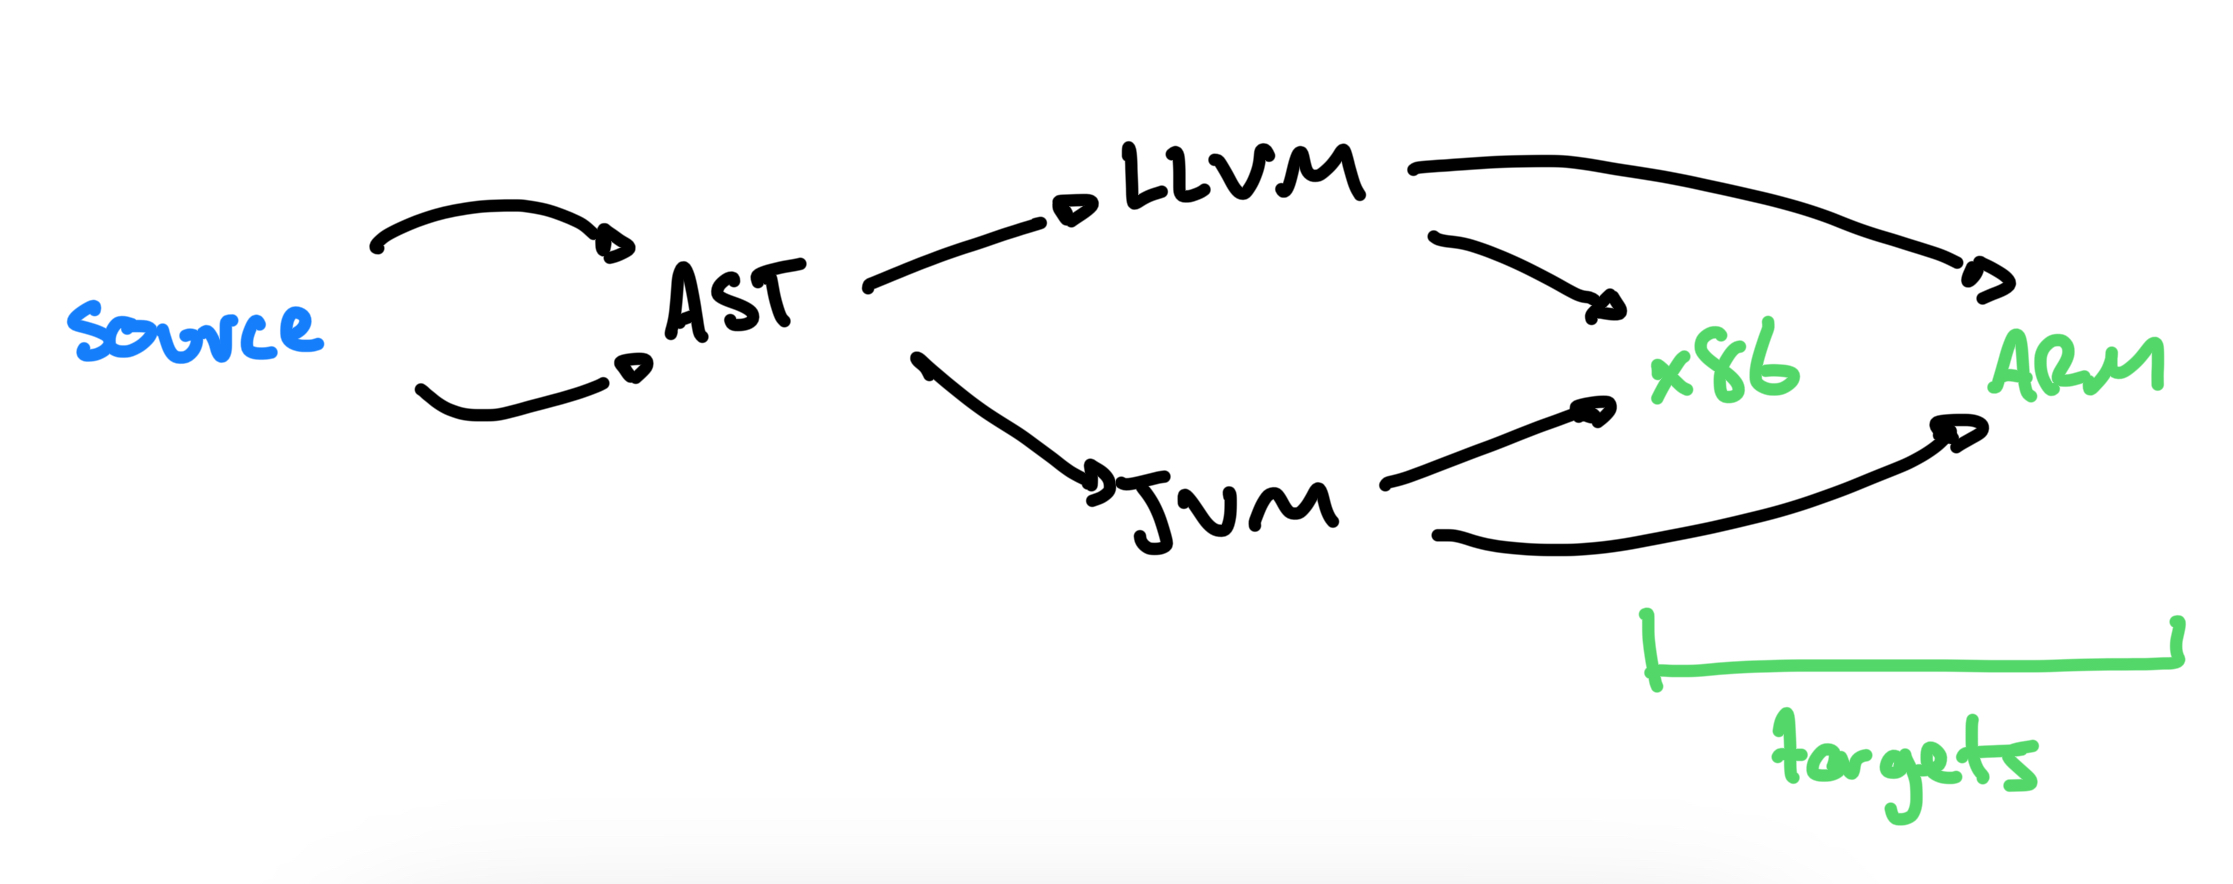 source
AST
LLVM
JVM
x86
ARM
targets